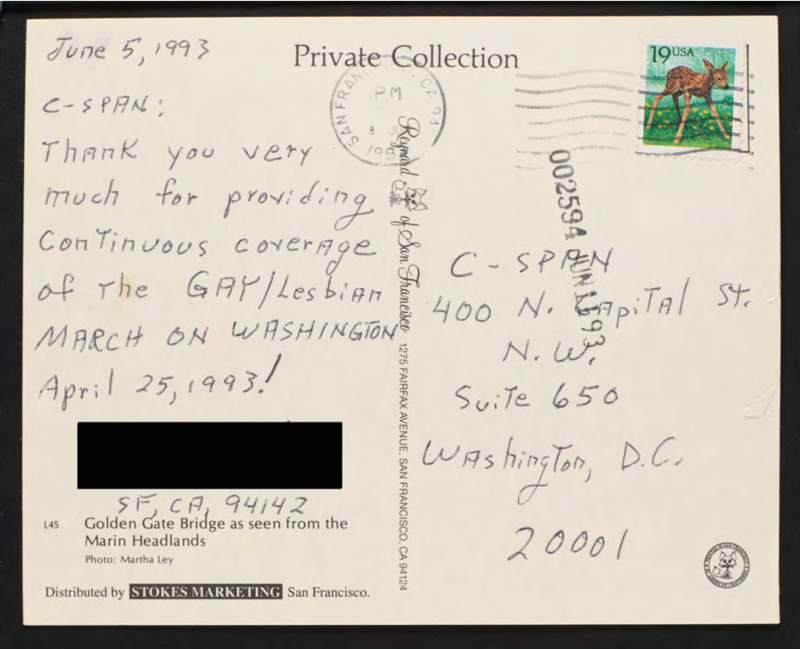 June 5, 1993
Private Collection
19 USA
C-SPAN:
Thank you very
much for providing
Continuous coverage
of The GAY/Lesbian
MARCH ON WASHINGTON
April 25, 1993!
SF, CA, 94142
L45 Golden Gate Bridge as seen from the
Marin Headlands
Photo: Martha Ley
Distributed by STOKES MARKETING San Francisco.
PM
Reynard of San Francisco 1275 FAIRFAX AVENUE, SAN FRANCISCO, CA 94124
002594
C-SPAN
400 N. Capital St.
N.W.
Suite 650
Washington, D.C.
20001